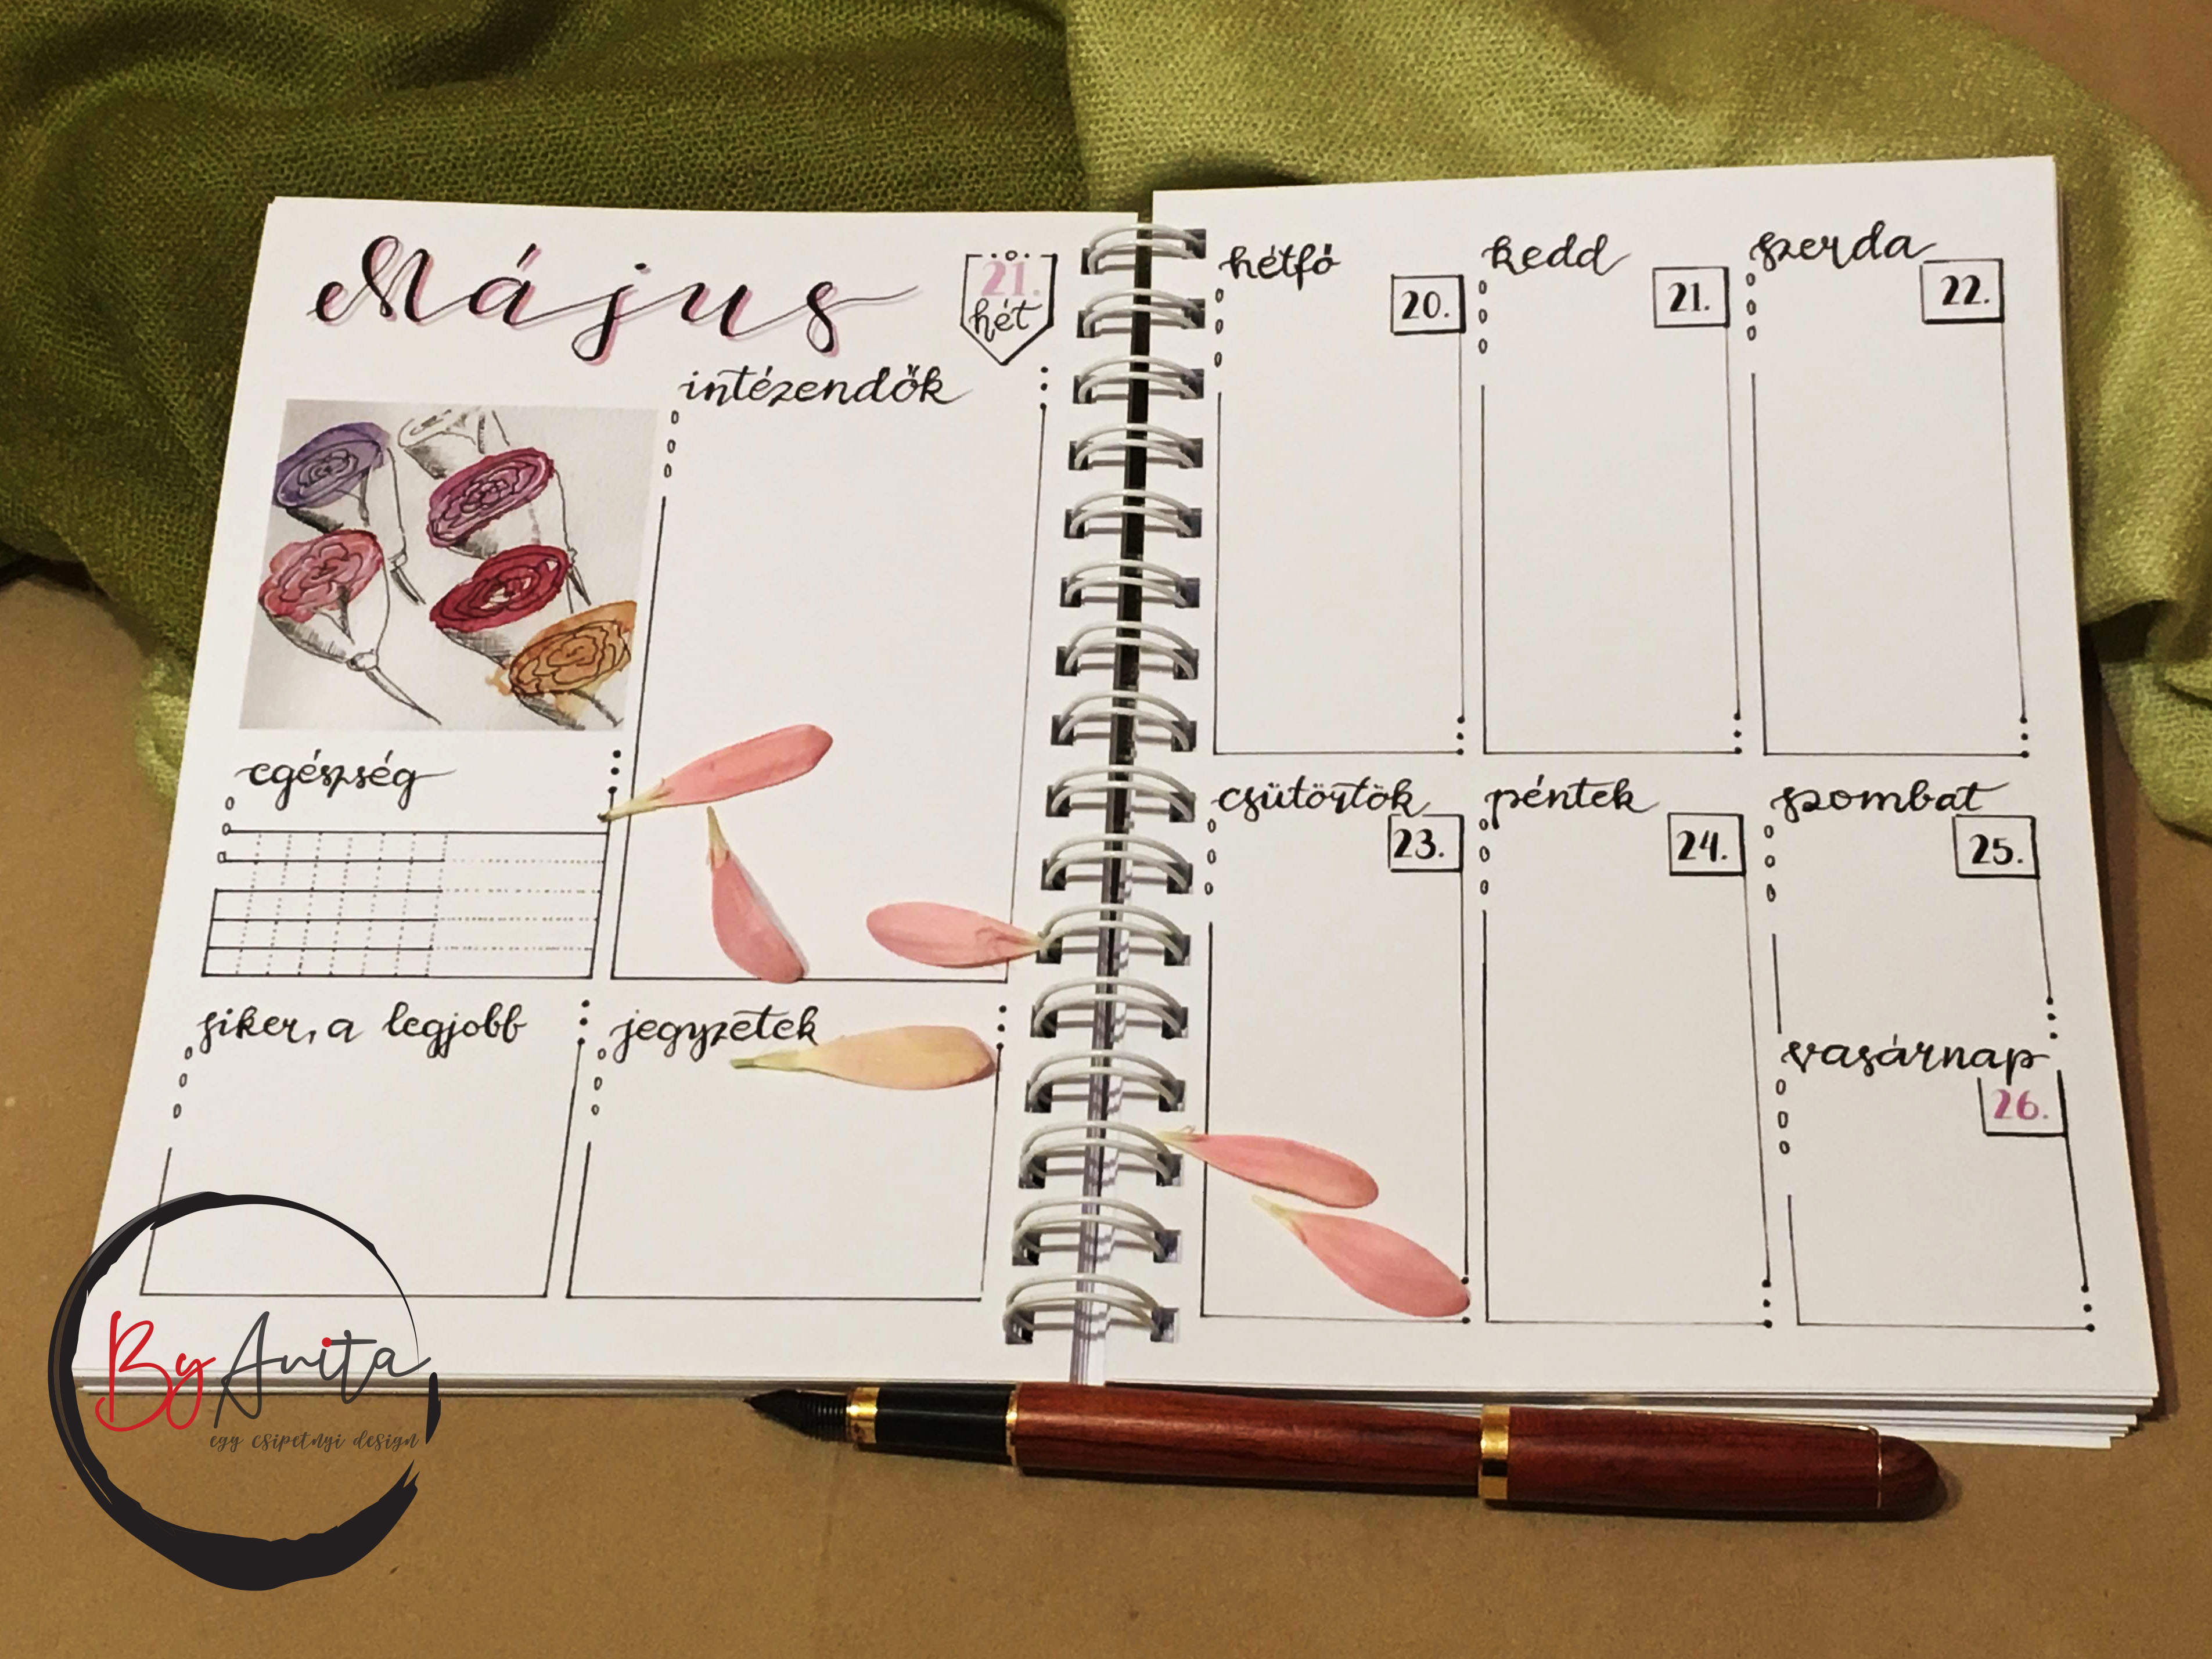 Május
21.
hét
intézendők
egészség
siker, a legjobb
jegyzetek
hétfő
20.
kedd
21.
szerda
22.
csütörtök
23.
péntek
24.
szombat
25.
vasárnap
26.
By Anita
egy csipetnyi design